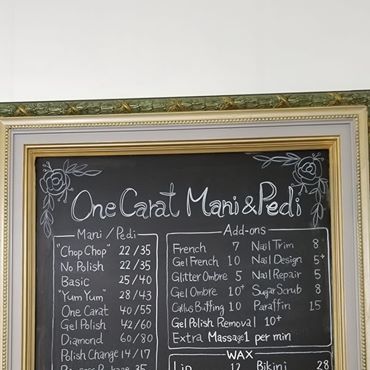 One Carat Mani & Pedi
Mani / Pedi
"Chop Chop" 22/35
No Polish 22/35
Basic 25/40
"Yum Yum" 28/43
One Carat 40/55
Gel Polish 42/60
Diamond 60/80
Polish Change 14/17
35
Add-ons
French 7 Nail Trim 8
Gel French 10 Nail Design 5+
Glitter Ombre 5 Nail Repair 5
Gel Ombre 10+ Sugar Scrub 8
Callus Buffing 10 Paraffin 15
Gel Polish Removal 10+
Extra Massage 1 per min
WAX
Lip 12 Bikini 28